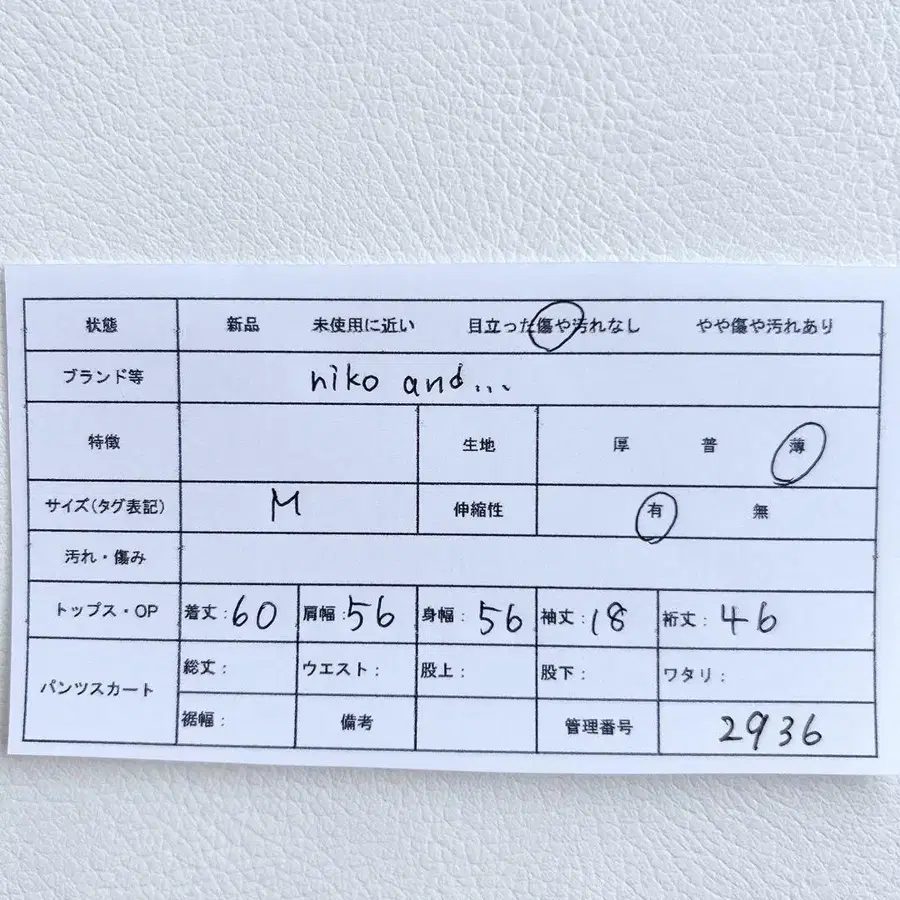 状態 新品 未使用に近い 目立った傷や汚れなし やや傷や汚れあり
ブランド等 niko and...
特徴 生地 厚 普 薄
サイズ(タグ表記) M 伸縮性 有 無
汚れ・傷み
トップス・OP 着丈:60 肩幅:56 身幅:56 袖丈:18 裄丈:46
パンツスカート 総丈: ウエスト: 股上: 股下: ワタリ:
裾幅: 備考 管理番号 2936